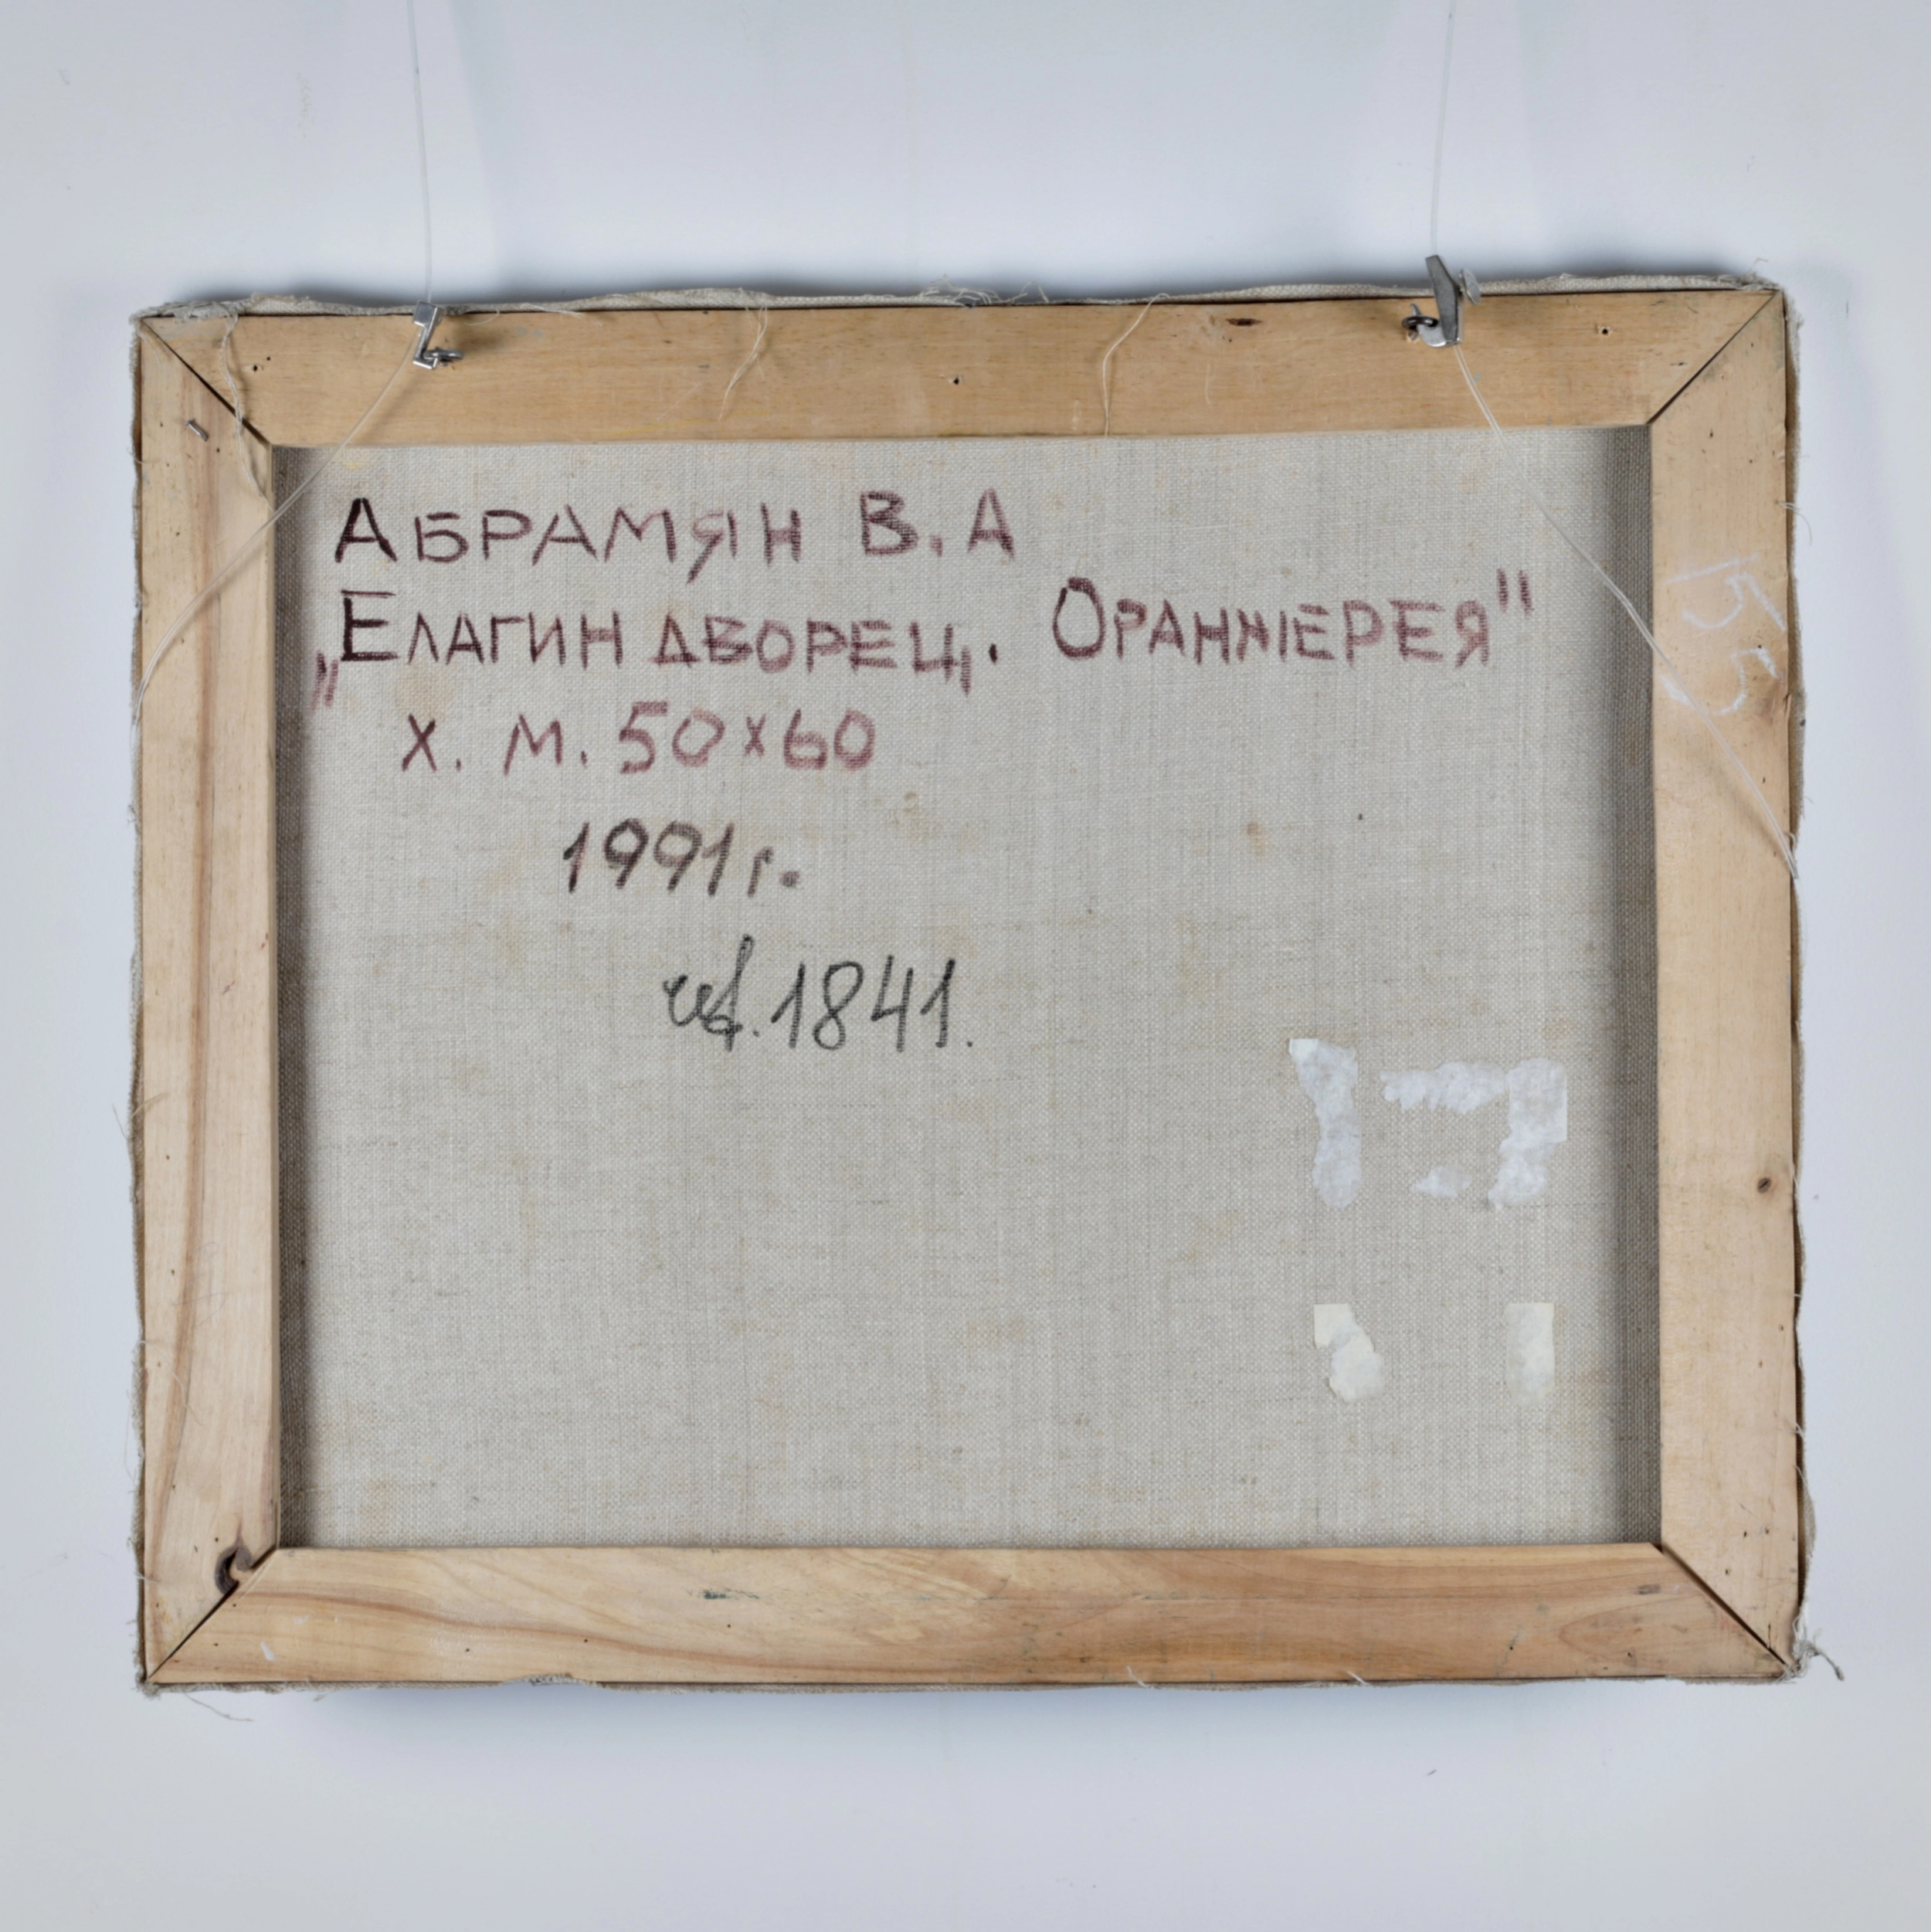 АБРАМЯН В.А
„ЕЛАГИН ДВОРЕЦ. ОРАНЖЕРЕЯ"
х. м. 50×60
1991 г.
1841.
55